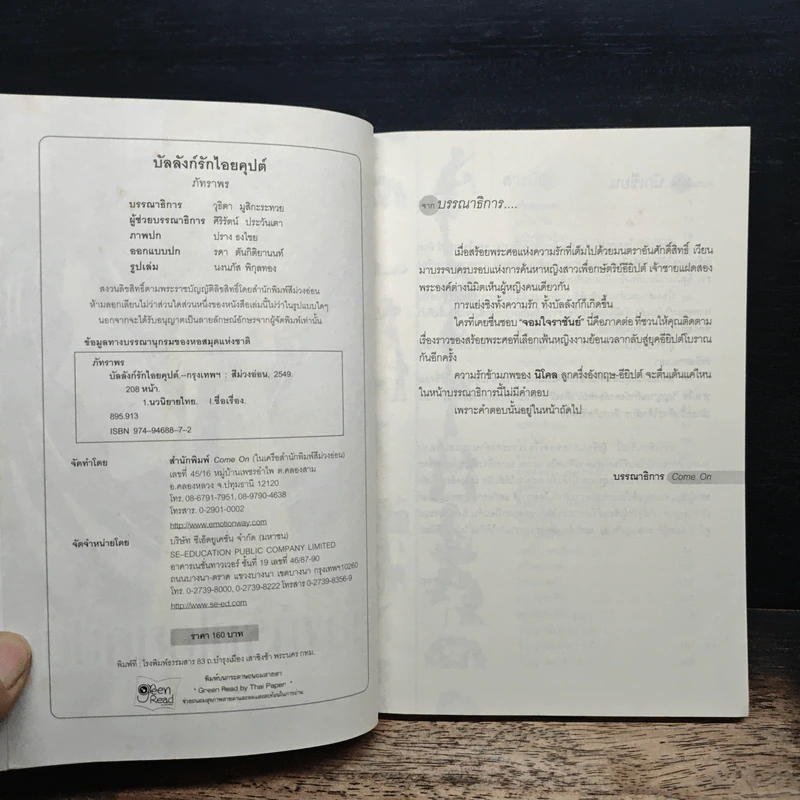 บัลลังก์รักไอยคุปต์
ภัทราพร
บรรณาธิการ วุธิตา มูสิกะระทวย
ผู้ช่วยบรรณาธิการ ศิริรัตน์ ประวันเตา
ภาพปก ปราง ธงไชย
ออกแบบปก รดา ตันกิติยานนท์
รูปเล่ม นงนภัส พิกุลทอง
สงวนลิขสิทธิ์ตามพระราชบัญญัติลิขสิทธิ์โดยสำนักพิมพ์สีม่วงอ่อน
ห้ามลอกเลียนไม่ว่าส่วนใดส่วนหนึ่งของหนังสือเล่มนี้ไม่ว่าในรูปแบบใดๆ
นอกจากจะได้รับอนุญาตเป็นลายลักษณ์อักษรจากผู้จัดพิมพ์เท่านั้น
ข้อมูลทางบรรณานุกรมของหอสมุดแห่งชาติ
ภัทราพร
บัลลังก์รักไอยคุปต์.--กรุงเทพฯ : สีม่วงอ่อน, 2549.
208 หน้า.
1.นวนิยายไทย. I.ชื่อเรื่อง.
895.913
ISBN 974-94688-7-2
จัดทำโดย สำนักพิมพ์ Come On (ในเครือสำนักพิมพ์สีม่วงอ่อน)
เลขที่ 45/16 หมู่บ้านเพชรอำไพ ต.คลองสาม
อ.คลองหลวง จ.ปทุมธานี 12120
โทร. 08-6791-7951, 08-9790-4638
โทรสาร. 0-2901-0002
http://www.emotionway.com
จัดจำหน่ายโดย บริษัท ซีเอ็ดยูเคชั่น จำกัด (มหาชน)
SE-EDUCATION PUBLIC COMPANY LIMITED
อาคารเนชั่นทาวเวอร์ ชั้นที่ 19 เลขที่ 46/87-90
ถนนบางนา-ตราด แขวงบางนา เขตบางนา กรุงเทพฯ10260
โทร. 0-2739-8000, 0-2739-8222 โทรสาร 0-2739-8356-9
http://www.se-ed.com
ราคา 160 บาท
พิมพ์ที่ : โรงพิมพ์ธรรมสาร 83 ถ.บำรุงเมือง เสาชิงช้า พระนคร กทม.
Green Read
พิมพ์บนกระดาษถนอมสายตา
" Green Read by Thai Paper "
จาก บรรณาธิการ....
เมื่อสร้อยพระศอแห่งความรักที่เต็มไปด้วยมนตราอันศักดิ์สิทธิ์ เวียน
มาบรรจบครบรอบแห่งการค้นหาหญิงสาวเพื่อกษัตริย์อียิปต์ เจ้าชายแฝดสอง
พระองค์ต่างนิมิตเห็นผู้หญิงคนเดียวกัน
การแย่งชิงทั้งความรัก ทั้งบัลลังก์ก็เกิดขึ้น
ใครที่เคยชื่นชอบ "จอมใจราชันย์" นี่คือภาคต่อ ที่ชวนให้คุณติดตาม
เรื่องราวของสร้อยพระศอที่เลือกเฟ้นหญิงงามย้อนเวลากลับสู่ยุคอียิปต์โบราณ
กันอีกครั้ง
ความรักข้ามภพของ นิโคล ลูกครึ่งอังกฤษ-อียิปต์ จะตื่นเต้นแค่ไหน
ในหน้าบรรณาธิการนี้ไม่มีคำตอบ
เพราะคำตอบนั้นอยู่ในหน้าถัดไป
บรรณาธิการ Come On